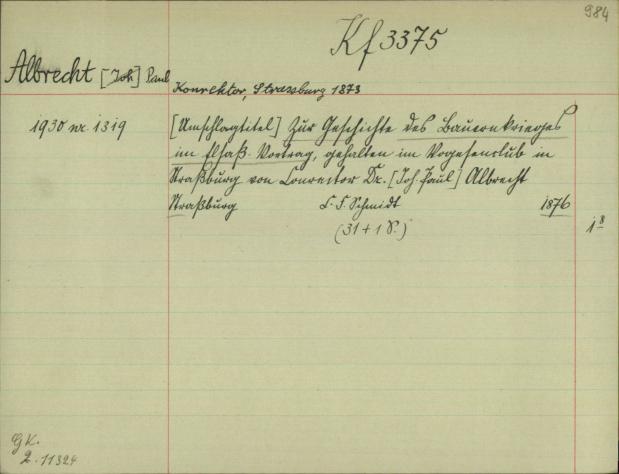 984
Kf 3375
Albrecht [Joh] Paul
Konrektor, Strassburg 1873
1930 nr. 1319
[Umschlagtitel] Zur Geschichte des Bauernkrieges
im Elsaß. Vortrag, gehalten im Vogesenclub in
Straßburg von Conrector Dr. [Joh. Paul] Albrecht
Straßburg C. F. Schmidt 1876
(31 + 1 S.)
i 8
GK.
2.11324